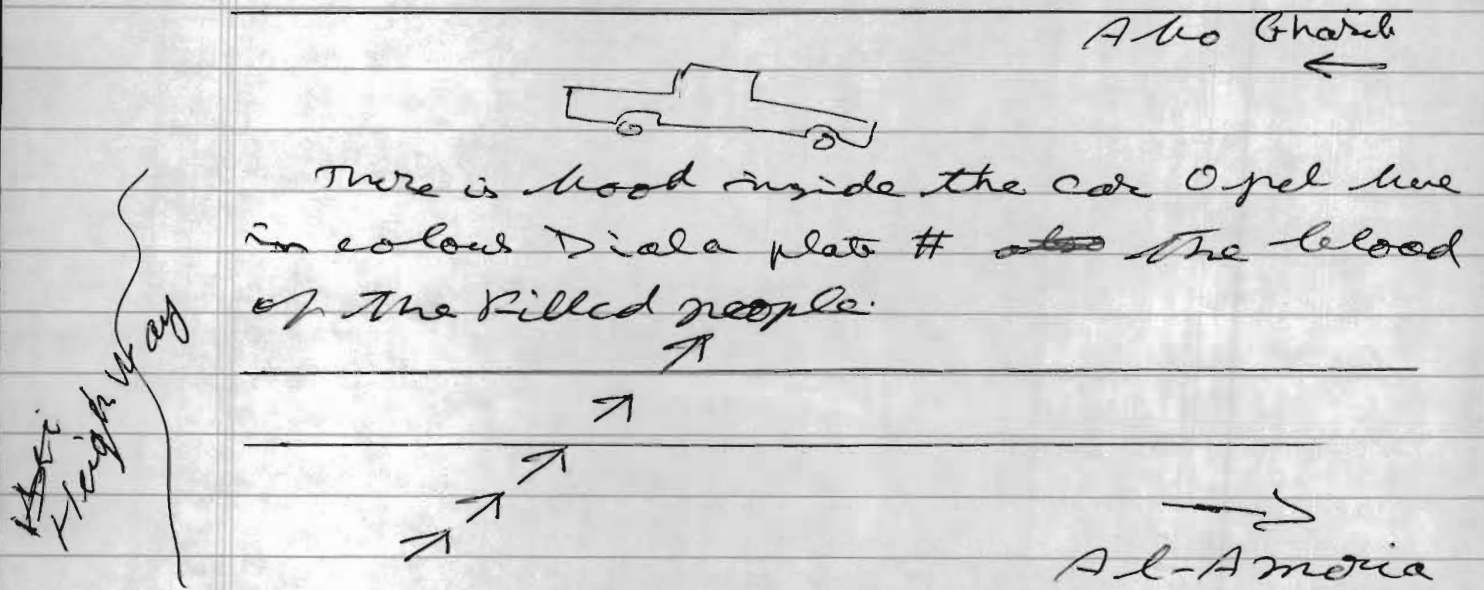 Abo Gharib
There is blood inside the car Opel blue
in colour Diala plate # also the blood
of the Killed people.
Heigh way
Al-Amoria